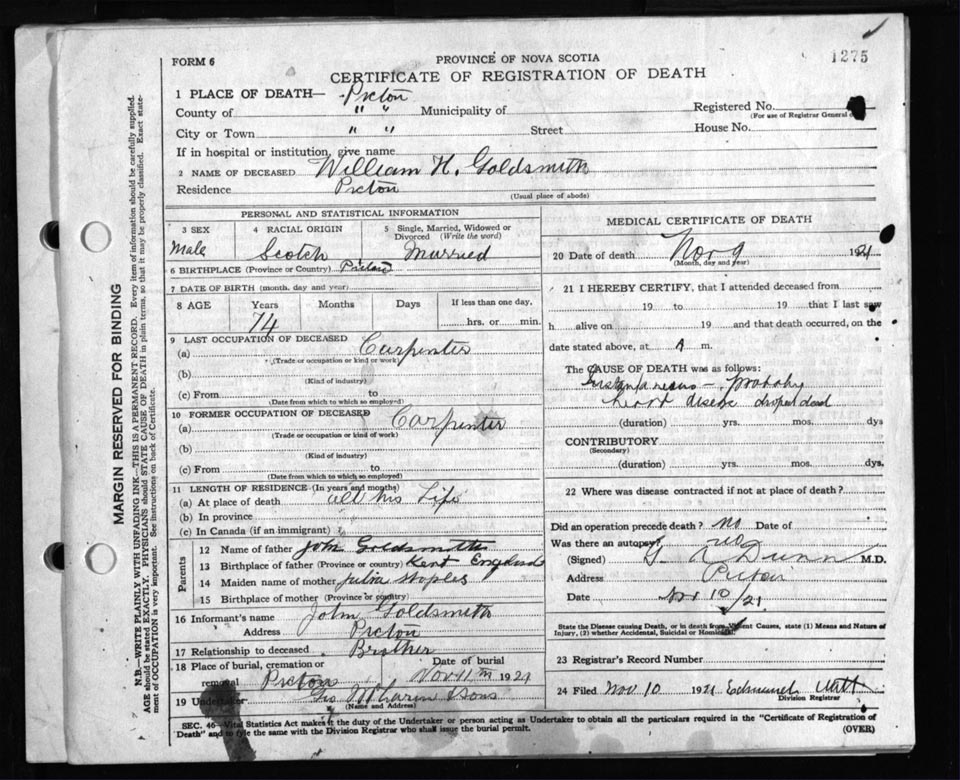 FORM 6
PROVINCE OF NOVA SCOTIA
1275
CERTIFICATE OF REGISTRATION OF DEATH
1 PLACE OF DEATH— Picton
County of " " Municipality of Registered No.
(For use of Registrar General
City or Town " " Street House No.
If in hospital or institution, give name
2 NAME OF DECEASED William H. Goldsmith
Residence Picton
(Usual place of abode)
PERSONAL AND STATISTICAL INFORMATION
3 SEX 4 RACIAL ORIGIN 5 Single, Married, Widowed or
Divorced (Write the word)
Male Scotch Married
6 BIRTHPLACE (Province or Country) Picton
7 DATE OF BIRTH (month, day and year)
8 AGE Years Months Days If less than one day,
74 hrs. or min.
9 LAST OCCUPATION OF DECEASED
(a) Carpenter
(Trade or occupation or kind or work)
(b)
(Kind of industry)
(c) From to
(Date from which to which so employed)
10 FORMER OCCUPATION OF DECEASED
(a) Carpenter
(Trade or occupation or kind of work)
(b)
(Kind of industry)
(c) From to
(Date from which to which so employed)
11 LENGTH OF RESIDENCE (In years and months)
(a) At place of death all his Life
(b) In province
(c) In Canada (if an immigrant)
Parents
12 Name of father John Goldsmith
13 Birthplace of father (Province or country) Kent England
14 Maiden name of mother Julia Staples
15 Birthplace of mother (Province or country)
16 Informant's name John Goldsmith
Address Picton
17 Relationship to deceased Brother
18 Place of burial, cremation or Date of burial
removal Picton Nov 11th 1921
19 Undertaker & Sons
(Name and Address)
MEDICAL CERTIFICATE OF DEATH
20 Date of death Nov 9 1921
(Month, day and year)
21 I HEREBY CERTIFY, that I attended deceased from
19 to 19 that I last saw
h alive on 19 and that death occurred, on the
date stated above, at m.
The CAUSE OF DEATH was as follows:
Instantaneous — probably
heart disease droped dead
(duration) yrs. mos. dys
CONTRIBUTORY
(Secondary)
(duration) yrs. mos. dys.
22 Where was disease contracted if not at place of death?
Did an operation precede death? no Date of
Was there an autopsy no
(Signed) Dunn M.D.
Address Picton
Date Nov 10/21.
State the Disease causing Death, or in death from Violent Causes, state (1) Means and Nature of
Injury, (2) whether Accidental, Suicidal or Homicidal.
23 Registrar's Record Number
24 Filed Nov 10 1921 Edmund
Division Registrar
SEC. 46—Vital Statistics Act makes it the duty of the Undertaker or person acting as Undertaker to obtain all the particulars required in the "Certificate of Registration of
Death" and to file the same with the Division Registrar who shall issue the burial permit. (OVER)
MARGIN RESERVED FOR BINDING
N.B.—WRITE PLAINLY WITH UNFADING INK—THIS IS A PERMANENT RECORD. Every item of information should be carefully supplied.
AGE should be stated EXACTLY. PHYSICIANS should STATE CAUSE OF DEATH in plain terms, so that it may be properly classified. Exact state-
ment of OCCUPATION is very important. See instructions on back of Certificate.